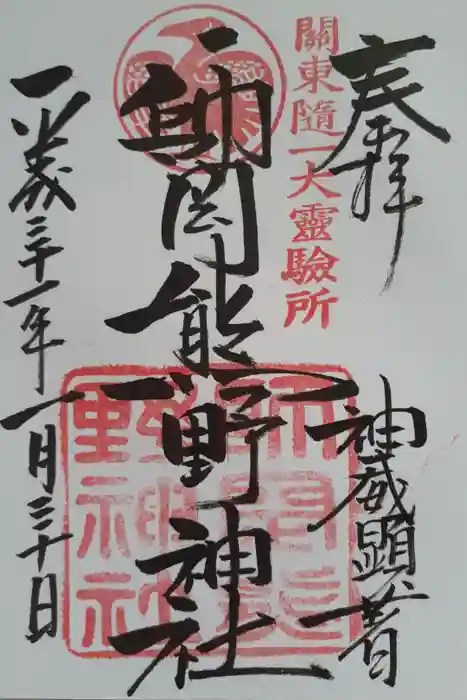 奉拝
神威顕著
關東隨一大靈驗所
師岡熊野神社
師岡熊
野神社
平成三十一年一月三十日